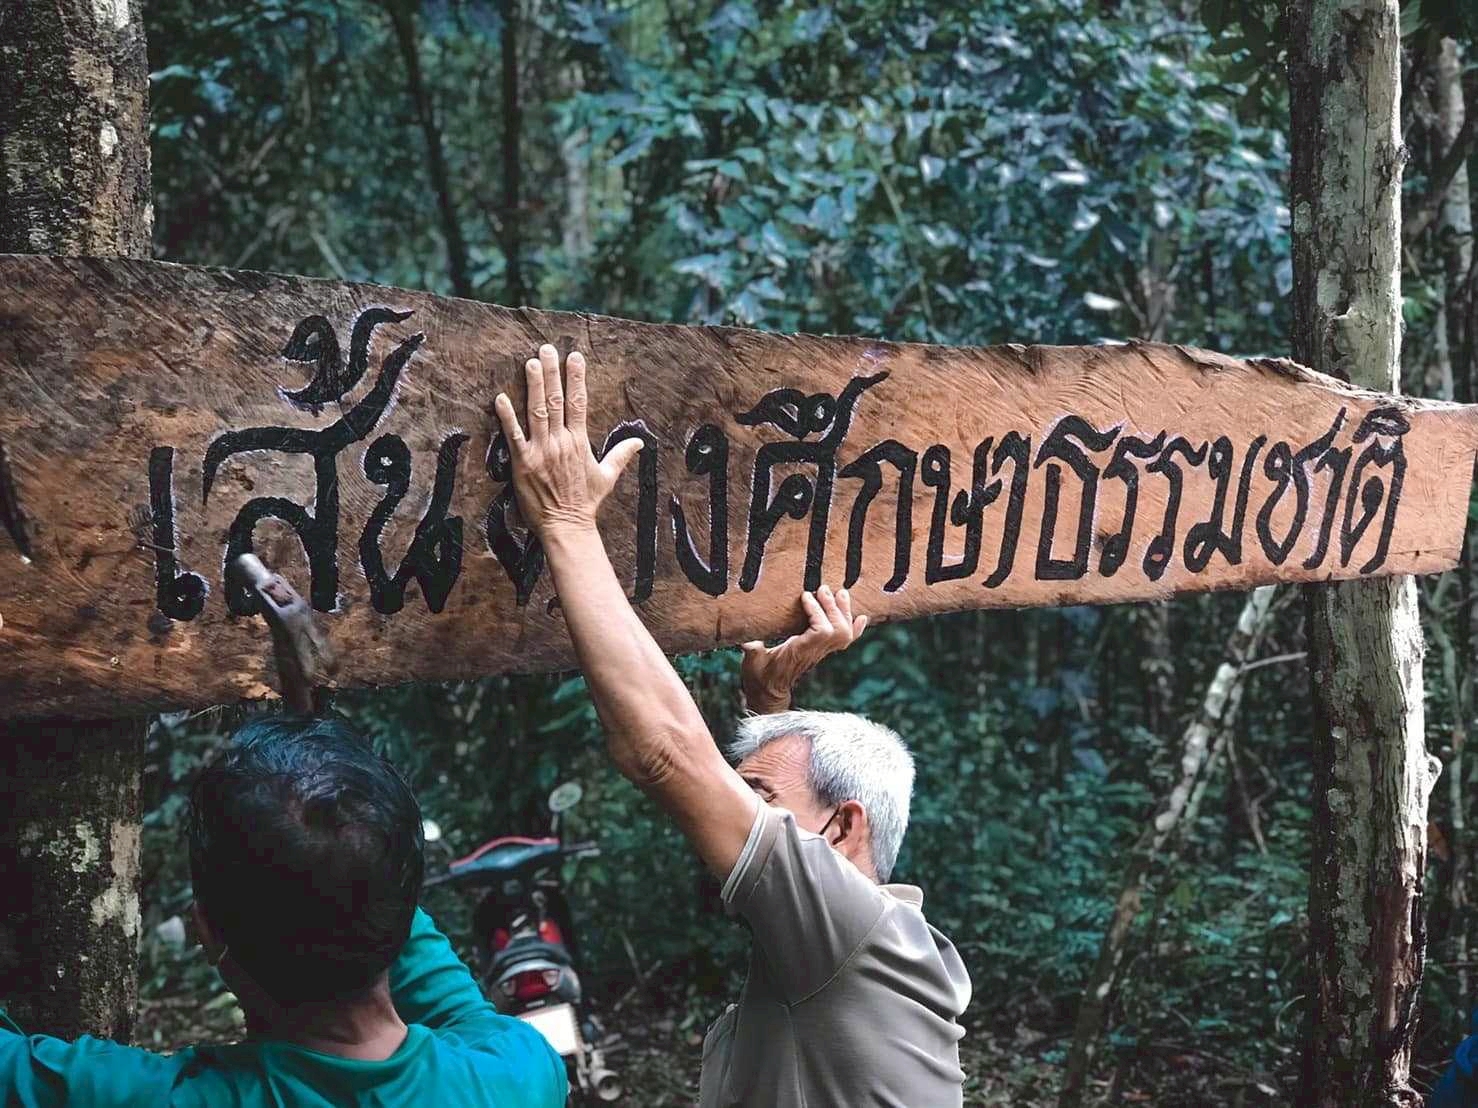 เส้นทางศึกษาธรรมชาติ